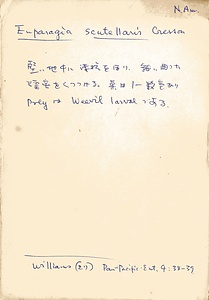 N. Am.
Euparagia scutellaris Cresson
堅い地中に深坑をほり 短い曲った
煙突をくっつける。巣は1〜数室あり
Prey は Weevil larvae である.
Williams (27) Pan-Pacific Ent. 4: 38-39